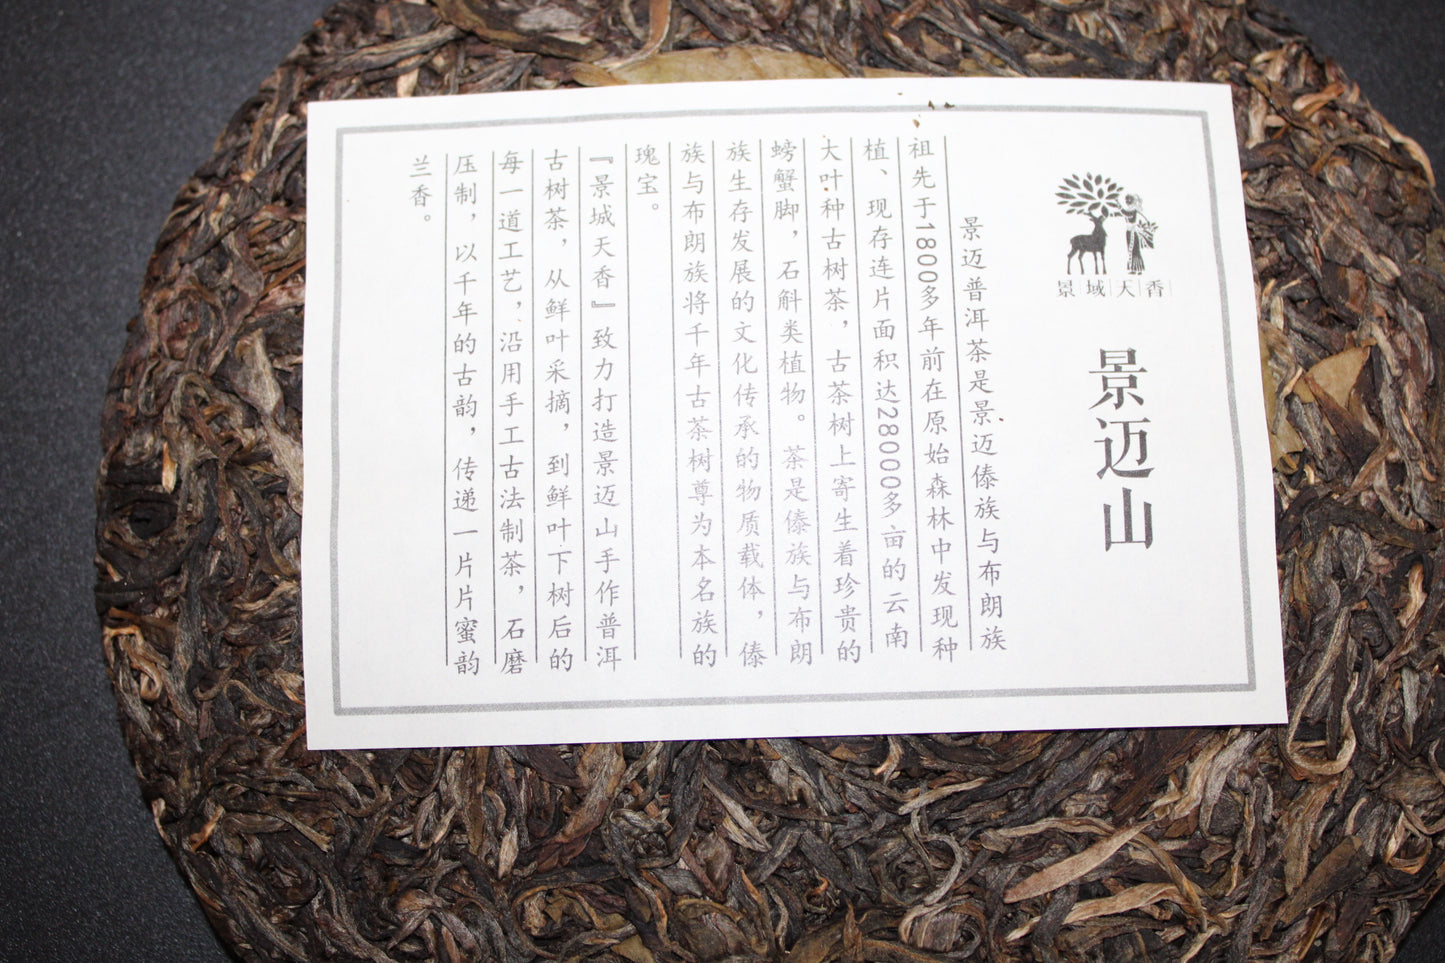 景域天香
景迈山
景迈普洱茶是景迈傣族与布朗族
祖先于1800多年前在原始森林中发现种
植、现存连片面积达28000多亩的云南
大叶种古树茶，古茶树上寄生着珍贵的
螃蟹脚，石斛类植物。茶是傣族与布朗
族生存发展的文化传承的物质载体，傣
族与布朗族将千年古茶树尊为本名族的
瑰宝。
『景城天香』致力打造景迈山手作普洱
古树茶，从鲜叶采摘，到鲜叶下树后的
每一道工艺，沿用手工古法制茶，石磨
压制，以千年的古韵，传递一片片蜜韵
兰香。